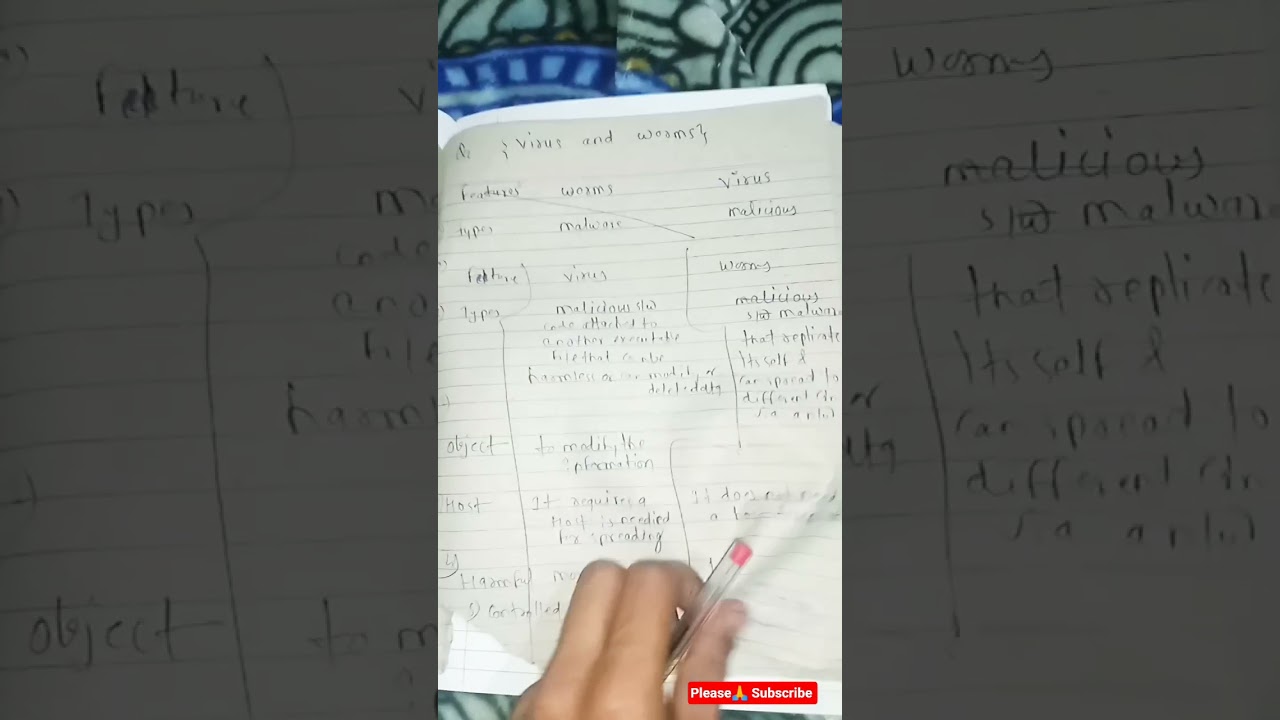 { Virus and worms}
Features worms Virus
types malware malicious
Feature virus worms
Types malicious s/w malicious
code attached to s/w malware
another executable that replicate
file that can be itself &
harmless or can modify or can spread to
delete data different
object to modify the
information
Host It requires a It does not need
Host is needed a
for spreading
4)
Harmful
1) Controlled
Please🙏 Subscribe